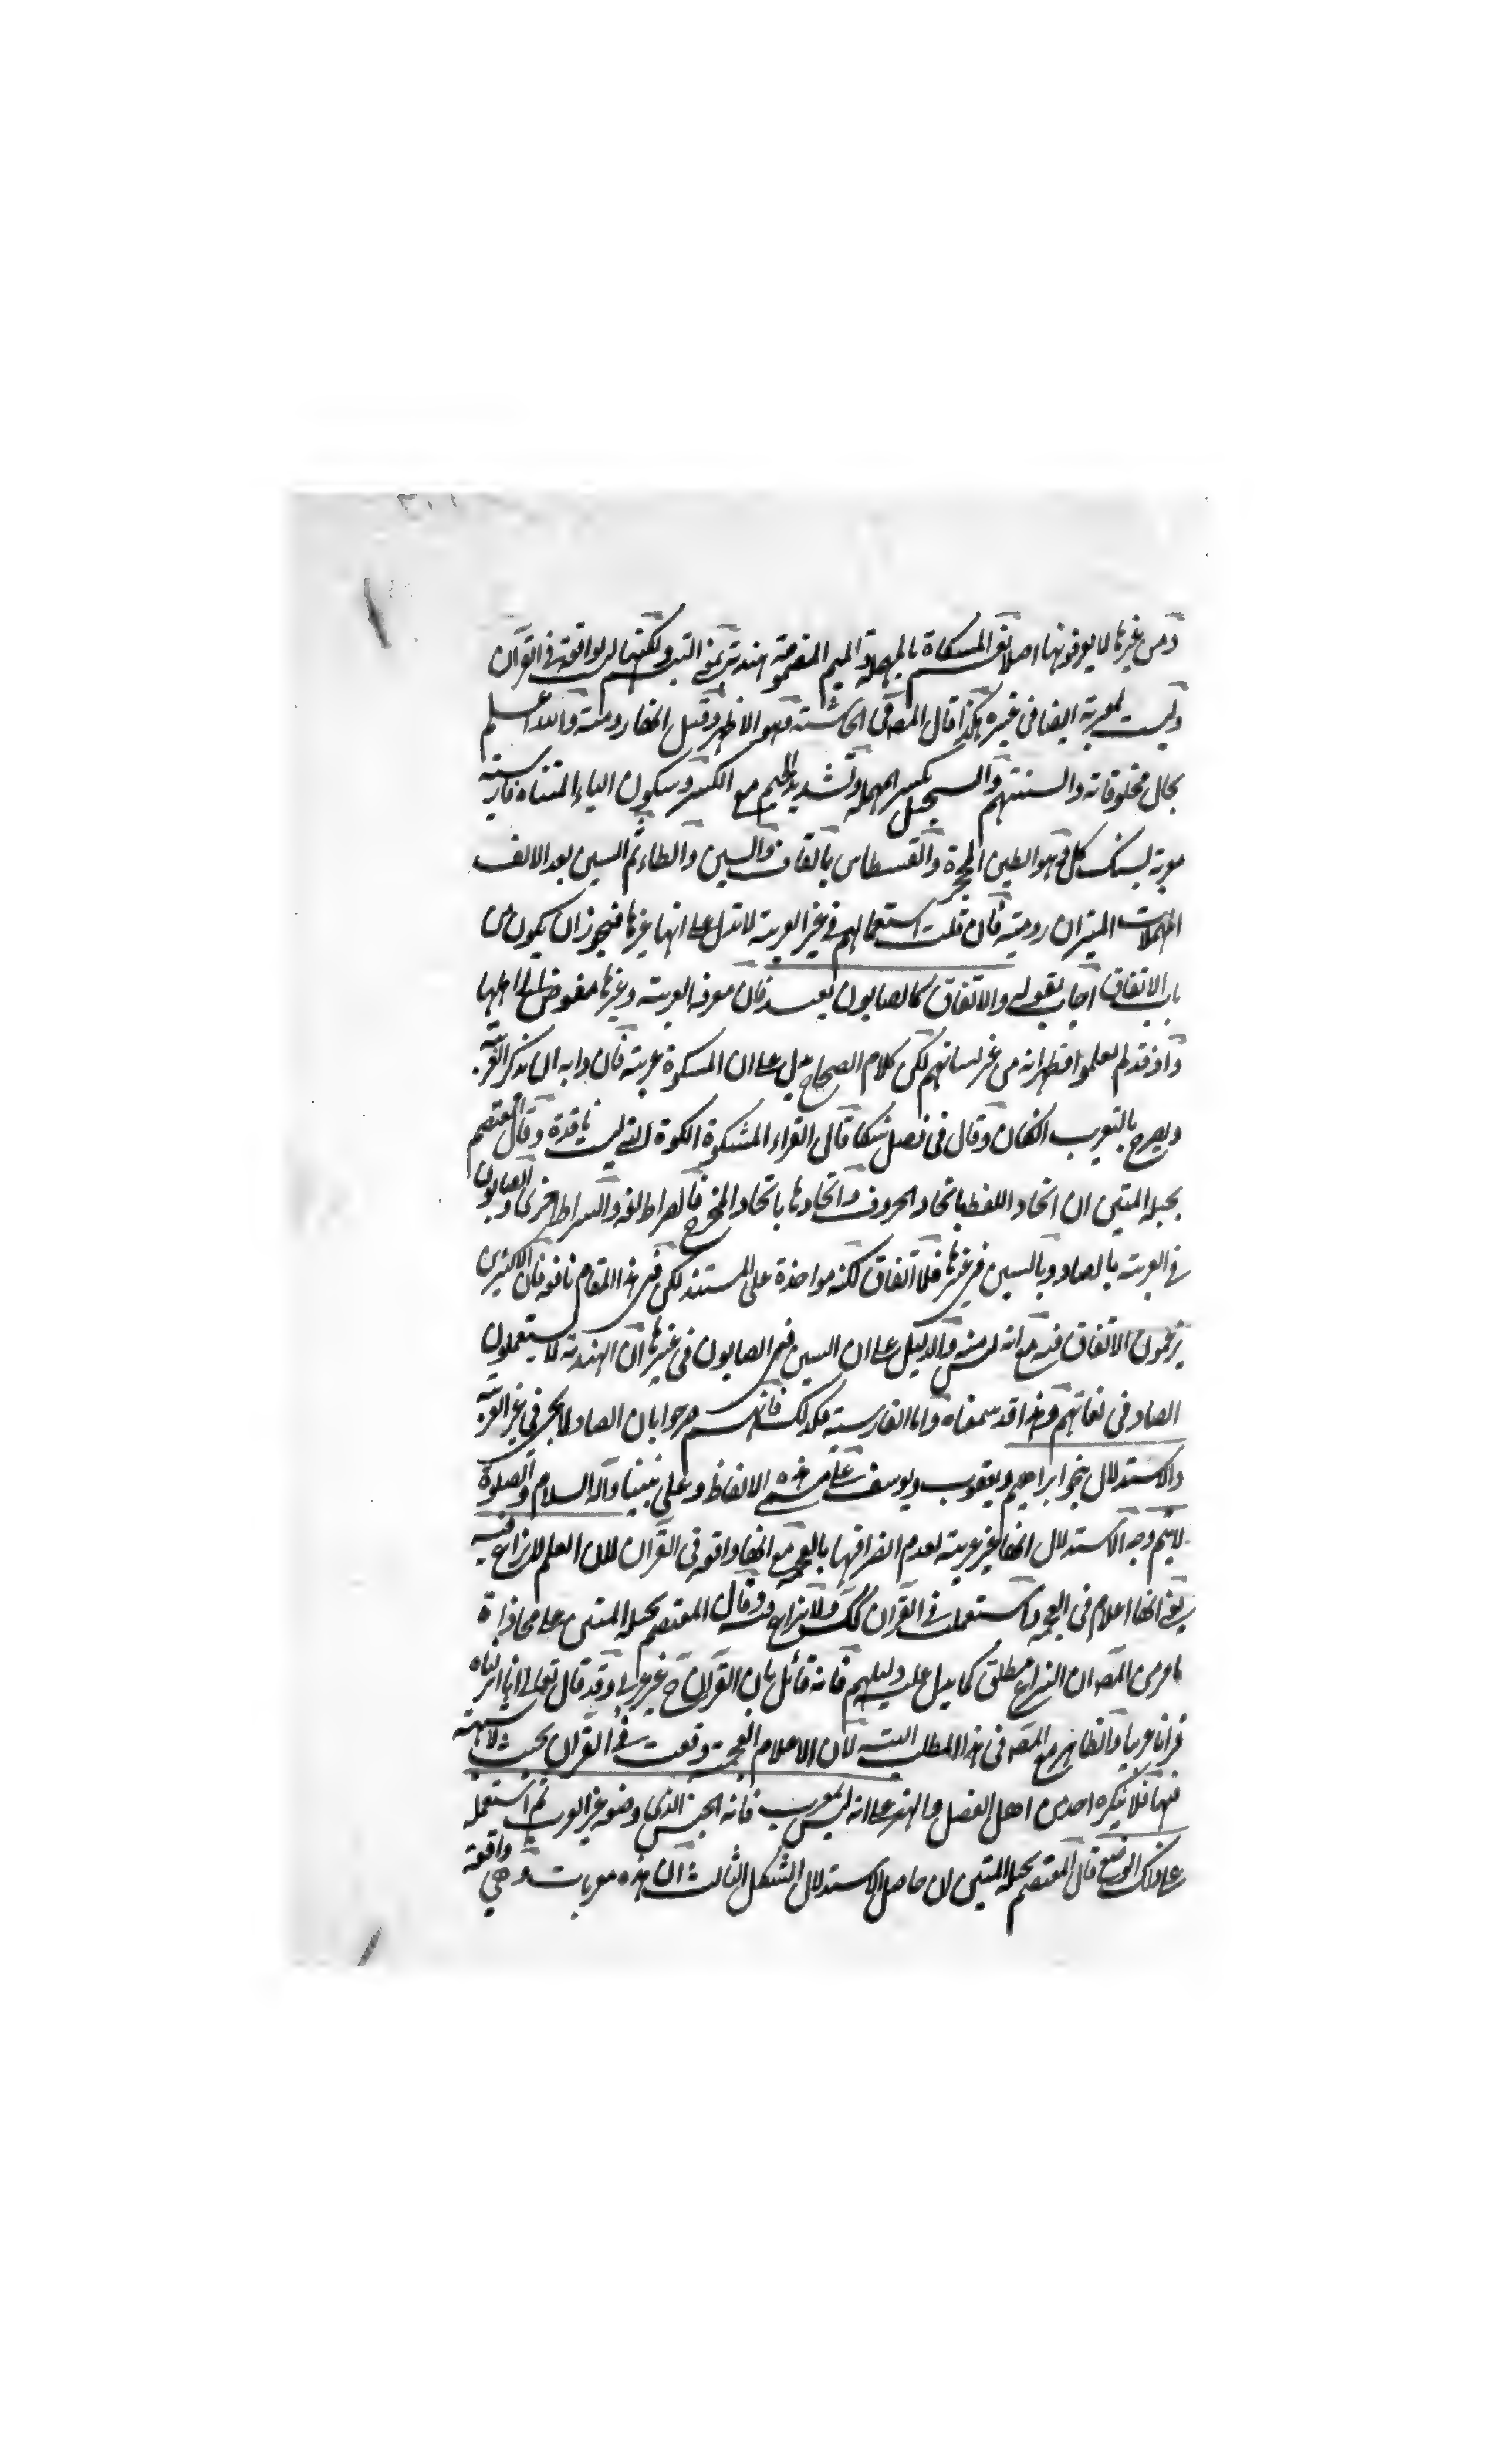 ومن غيرها لا يعرفونها اصلا نعم المسكاة بالمهملة والميم المضمومة هندية بمعنى التبسم ولكنها ليس بواقعة في القرآن
وليست بمعربة ايضا في غيره هكذا قال المصـ في الحاشية وهو الاظهر وقيل انها رومية والله اعلم
بحال مخلوقاته والسنتهم والسجيل بكسر المهملة وتشديد الجيم مع الكسر وسكون الياء المثناة فارسية
معربة لسنك كل وهو الطين المحجرة والقسطاس بالقاف والسين والطاء ثم السين بعد الالف
المهملات الميزان رومية فان قلت استعمالهم في غير العربية لا تدل على انها غيرها فيجوز ان يكون من
باب الاتفاق اجاب بقوله والاتفاق كالصابون بعيد فان معرفة العربية وغيرها مفوض الى اهلها
واذ قد لم يعلموا فظهر انه من غير لسانهم لكن كلام الصحاح يدل على ان المسكوة عربية فان دابه ان يذكر القرية
ويصرح بالتعريب ان كان وقال في فصل شكا قال الفراء المشكوة الكوة التي ليست نافذة وقال المعتصم
بحبله المتين ان اتحاد اللفظ باتحاد الحروف واتحادها باتحاد المخرج فالصراط لغة والسراط اخرى والصابون
في العربية بالصاد وبالسين في غيرها فلا اتفاق لكنه مواخذة على المستند لكن في هذا المقام نافعة فان الاكثرين
يزعمون الاتفاق فيه مع انه ليس منه والدليل على ان السين في الصابون في غيرها ان الهندية لا يستعملون
الصاد في لغاتهم وهذا قد سمعناه واما الفارسية فكذلك فانهم صرحوا بان الصاد لا يجئ في غير العربية
والاستدلال بنحو ابراهيم ويعقوب ويوسف على هذه الالفاظ وعلى نبينا وآله السلام والصلوة
لا يتم وجه الاستدلال انها غير عربية لعدم انصرافها بالعجمة مع انها واقعة في القرآن لان العلم لا نزاع فيه
يعني انها اعلام في العجمة واستعملت في القرآن كك ولا نزاع فيه وقال المعتصم بحبله المتين على محاذاة
ما مر من المصـ ان النزاع مطلق كما يدل عليه دليلهم فانه قائل بان القرآن ح غير عربي وقد قال تعالى انا انزلناه
قرانا عربيا والظاهر مع المصـ في هذا المطلب البتة لان الاعلام العجمية وقعت في القرآن بحيث لا شبهة
فيها فلا ينكره احد من اهل الفضل والهنر على انه ليس بمعرب فانه الجنس الذي وضعه غير العرب ثم استعمله
على ذلك الوضع قال المعتصم بحبله المتين لان حاصل الاستدلال الشكل الثالث ان هذه معربات وهي واقعة